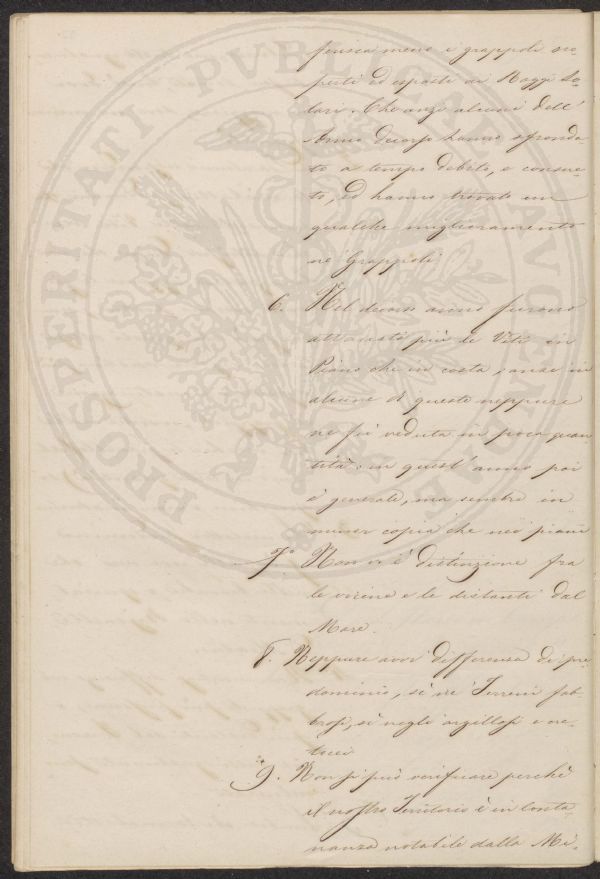 ferisca meno i grappoli co-
perti ed esposti ai Raggi So-
lari. Che anzi alcuni dell'
Anno decorso hanno sfronda
to a tempo debito, e consue-
to, ed hanno trovato un
qualche miglioramento
ne' Grappoli
6. Nel decorso anno furono
attaccate più le Viti in
Piano che in costa, anzi in
alcune di queste neppure
ne fù veduta in poca quan
tità: in quest'anno poi
è generale, ma sempre in
minor copia che nei piani
7.° Non vi è distinzione fra
le vicine e le distanti dal
Mare.
8. Neppure avvi differenza di pre
dominio, sì ne' Terreni sab-
biosi, sì negli argillosi e cre-
tacei
9. Non si può verificare perchè
il nostro Territorio è in lonta
nanza notabile dalla Mi-
PROSPERITATI PUBLICAE AUGENDAE